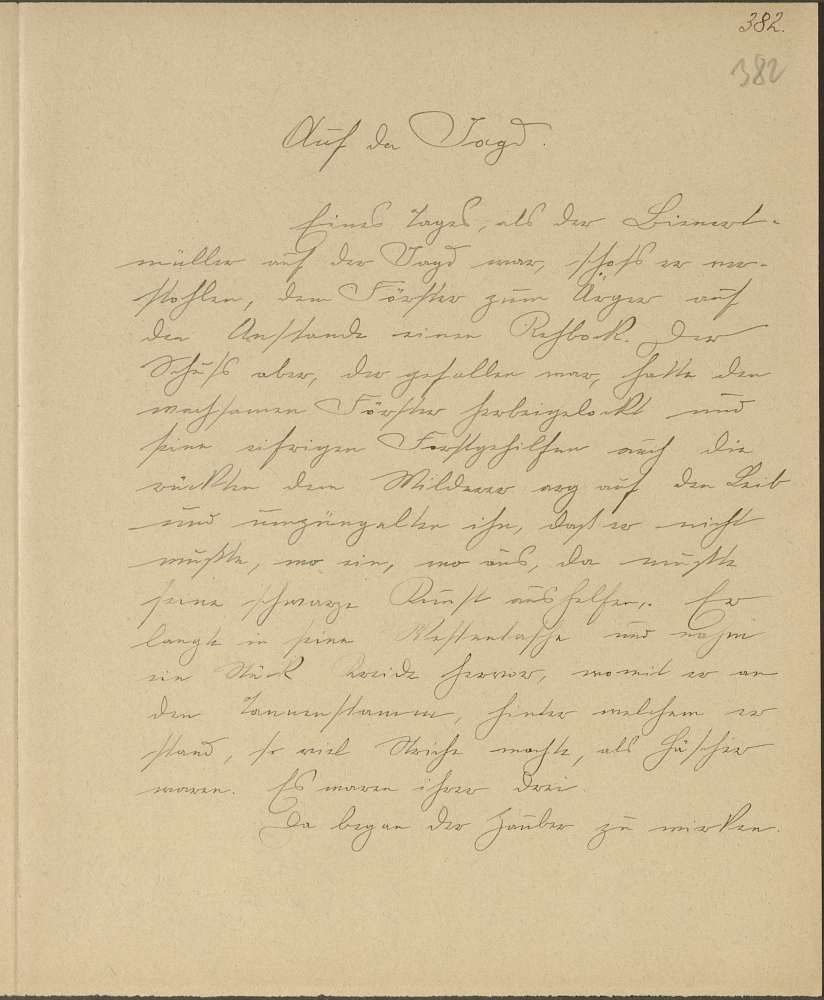 382.
382
Auf der Jagd.
Eines Tages, als der Bienert-
müller auf der Jagd war, schoß er ver-
stohlen, dem Förster zum Ärger auf
den Anstande einen Rehbock. Der
Schuß aber, der gefallen war, hatte den
wachsamen Förster herbeigelockt und
seine eifrigen Forstgehilfen auch die
rückten dem Wilderer arg auf den Leib
und umzüngelten ihn, daß er nicht
wußte, wo ein, wo aus, da mußte
seine schwarze Kunst aushelfen. Er
langte in seine Westentasche und nahm
ein Stück Kreide hervor, womit er an
den Tannenstamm, hinter welchem er
stand, so viel Striche machte, als Häscher
waren. Es waren ihrer drei.
Da began der Zauber zu wirken.